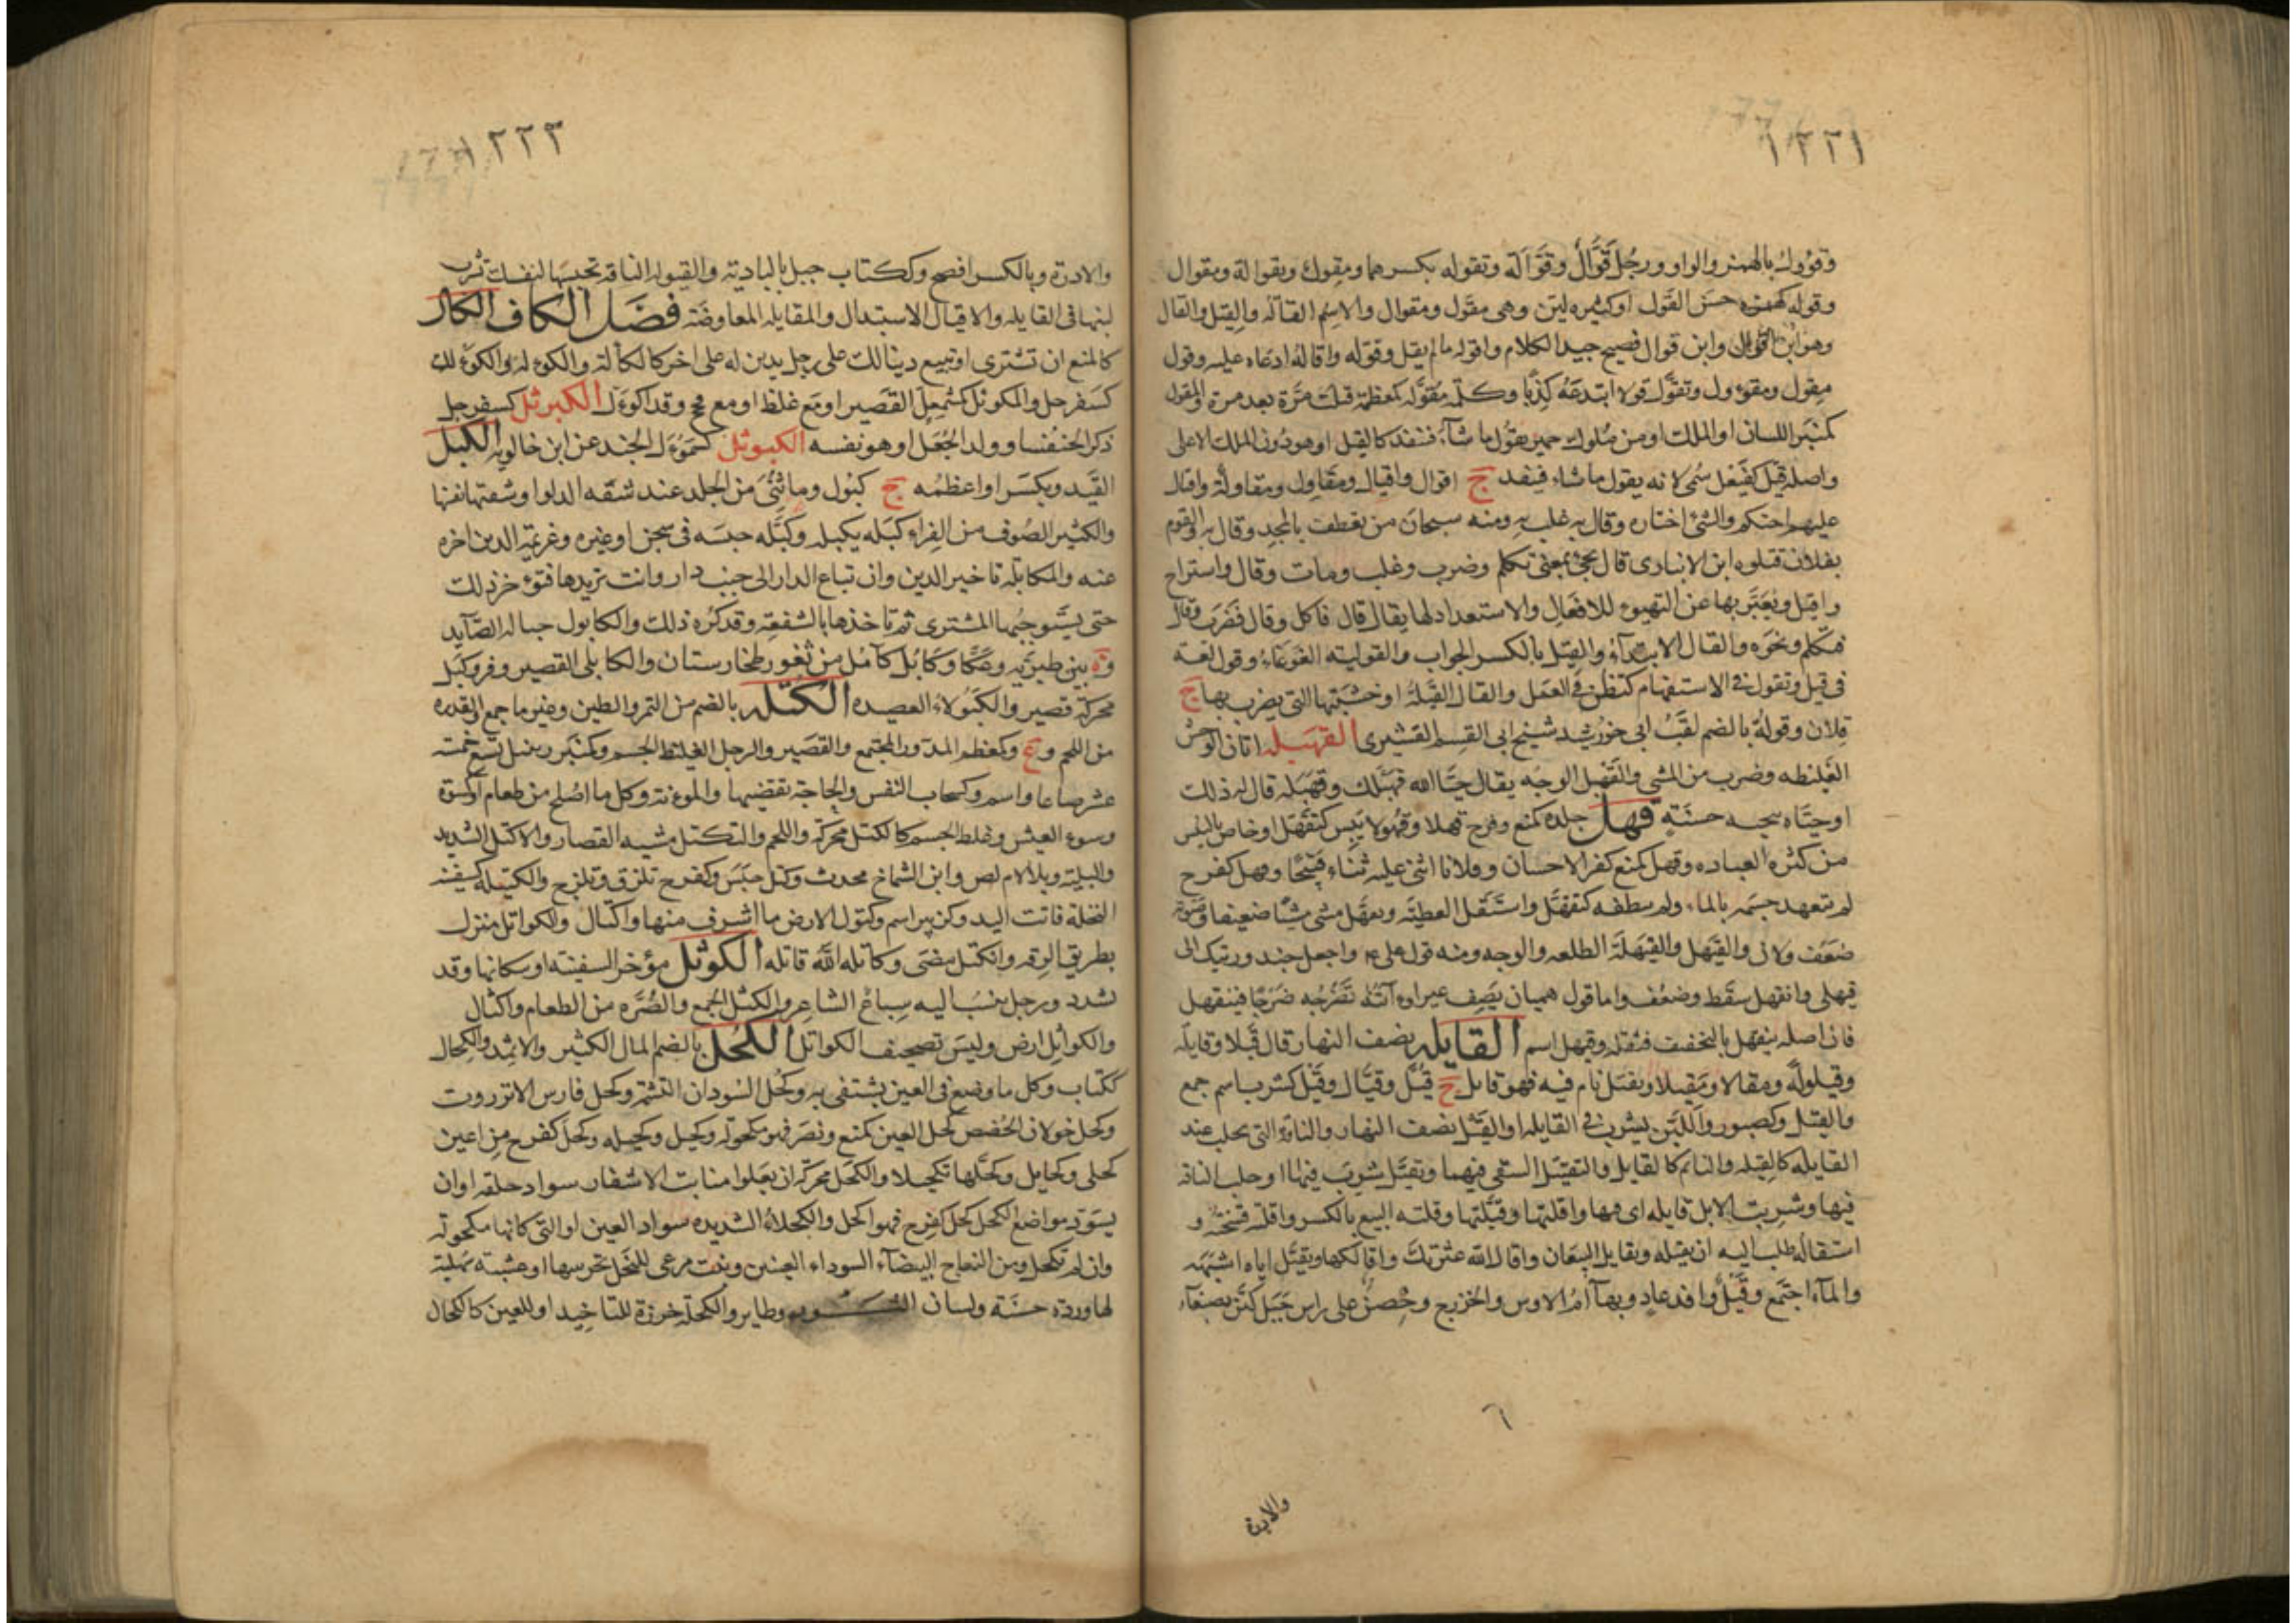 ١٢٢١
وقؤول بالهمز والواو ورجل قوال وقوالة وتقوله بكسرهما ومقول وتقوالة ومقوال
وقوله كهمزه حسن القول او كثيره لسن وهى مقول ومقوال والاسم القالة والقيل والقال
وهو ابن اقوال وابن قوال فصيح جيد الكلام واقوله ما لم يقل وقوله واقاله ادعاه عليه وقول
مقول ومقوول وتقول قولا ابتدعه كذبا وكلمة مقوله كمعظمة قيلت مرة بعد مرة والمقول
كمنبر اللسان او الملك او من ملوك حمير يقول ما شاء فينفذ كالقيل او هو دون الملك الاعلى
واصله قيل كفيعل سمى لانه يقول ما شاء فينفذ ج اقوال واقيال ومقاول ومقاولة واقتال
عليهم احتكم والشئ اختاره وقال به غلب به ومنه سبحان من تعطف بالمجد وقال به والقوم
بفلان قتلوه ابن الانبارى قال يجئ بمعنى تكلم وضرب وغلب ومات وقال واستراح
واقبل ويعبر بها عن التهيوء للافعال والاستعداد لها يقال قال فاكل وقال فضرب وقال
فتكلم ونحوه والقال الابتداء والقيل بالكسر الجواب والقوليه الغوغاء وقول لغة
فى قيل وتقول فى الاستفهام كتظن فى العمل والقال القلة او خشبتها التى يضرب بها ج
قلان وقولة بالضم لقب ابى خورشيد شيخ ابى القسم القشيرى القهبله اتان الوحش
الغليظه وضرب من المشى والقهبل الوجه يقال حيا الله قهبلك وقهبله قال له ذلك
او حياه بتحيه حسنة قهل جلده كمنع وفرح قهلا وقهولا يبس كتقهل او خاص باليبس
من كثره العباده وقهل كمنع كفر الاحسان وفلانا اثنى عليه ثناء قبيحا وقهل كفرح
لم يتعهد جسمه بالماء ولم ينظفه كتقهل واستقل العطيه وتقهل مشى مشيا ضعيفا وصوته
ضعف ولان والقيهل والقيهلة الطلعه والوجه ومنه قول على ع واجعل حندورتيك الى
قيهلى وانقهل سقط وضعف واما قول هميان يصف عيرا واتنه تضرجه ضرحا فينقهل
فان اصله ينقهل بالتخفيف فثقله وقيهل اسم القايله نصف النهار قال قيلا وقايله
وقيلولة ومقالا ومقيلا وتقيل نام فيه فهو قايل ج قيل وقيال وقيل كشرب اسم جمع
والقيل وكصبور اللبن يشرب فى القايله او القيل نصف النهار والناقة التى يحلب عند
القايله كالقيله والنائم كالقايل والتقييل السقى فيهما وتقيل شرب فيها او حلب الناقه
فيها وشربت الابل قايله اى فيها واقلتها وقيلتها وقلته البيع بالكسر واقلته فسخته و
استقاله طلب اليه ان يقيله وتقايل البيعان واقال الله عثرتك واقالكها وتقيل اباه اشبهه
والماء اجتمع وقيل وافد عاد وبهاء ام الاوس والخزرج وحصن على راس جبل كنن بصنعاء
٦
والادرة
١٢٢٣
والادرة وبالكسر افصح وككتاب جبل بالبادية والقيوله الناقه تحبسها لنفسك تشرب
لبنها فى القايله والاقتيال الاستبدال والمقايله المعاوضة فصل الكاف الكال
كالمنع ان تشترى او تبيع دينا لك على رجل بدين له على اخر كالكألة والكؤلة والكوءلل
كسفرجل والمكوئل كمشمعل القصير او مع غلظ او مع فحج وقد اكوءل الكبرثل كسفرجل
ذكر الخنفسا وولد الجعل او هو نفسه الكبوثل كسموءل الجند عن ابن خالويه الكبل
القيد ويكسر او اعظمه ج كبول وما ثنى من الجلد عند شفه الدلو او شفتها نفسها
والكثير الصوف من الفراء كبله يكبله وكبله حبسه فى سجن او غيره وغريمه الدين اخره
عنه والمكابلة تاخير الدين وان تباع الدار الى جنب دار وانت تريدها فتوءخر ذلك
حتى يستوجبها المشترى ثم تاخذها بالشفعة وقد كره ذلك والكابول حباله الصايد
وة بين طبريه وعكا وكابل كامل من ثغور طخارستان والكابلى القصير وفرو كبل
محركة قصير والكبولاء العصيده الكتله بالضم من التمر والطين وغيره ما جمع والقدره
من اللحم و ع وكمعظم المدور المجتمع والقصير والرجل الغليظ الجسم وكمنبر زنبيل تسع خمسة
عشر صاعا واسم وكسحاب النفس والحاجة تقضيها والمؤنة وكل ما اصلح من طعام او كسوة
وسوء العيش وغلظ الجسم كالكتل محركة واللحم والتكتل مشيه القصار والاكتل الشديد
والبلية وبلا لام لص وابن الشماخ محدث وكتل حبس وكفرح تلزق وتلزج والكتيله كسفينه
النخلة فاتت اليد وكزبير اسم وكتول الارض ما اشرف منها واكتال والكواتل منزل
بطريق الرقه وانكتل مضى وكاتله الله قاتله الكوثل مؤخر السفينه او سكانها وقد
تشدد ورجل ينسب اليه سباغ الشاعر والكثل الجمع والصره من الطعام واكثال
والكواثل ارض وليس تصحيف الكواتل الكحل بالضم المال الكثير والاثمد والكحال
ككتاب وكل ما وضع فى العين يشتفى به وكحل السودان التشمة وكحل فارس الانزروت
وكحل خولان الحضض كحل العين كمنع ونصر فهو مكحولة وكحيل وكحيله وكحل كفرح من اعين
كحلى وكحايل وكحلها تكحيلا والكحل محركة ان يعلوا منابت الاشفار سواد خلقه او ان
يسود مواضع الكحل كحل كفرح فهو اكحل والكحلاء الشديده سواد العين او التى كانها مكحولة
وان لم تكحل ومن النعاج البيضاء السوداء العينين ونبت مرعى للنحل تجرسها او عشبة سهلية
لها وردة حسنة ولسان الثور وطاير والكحلة خرزة للتاخيد او للعين كالكحال